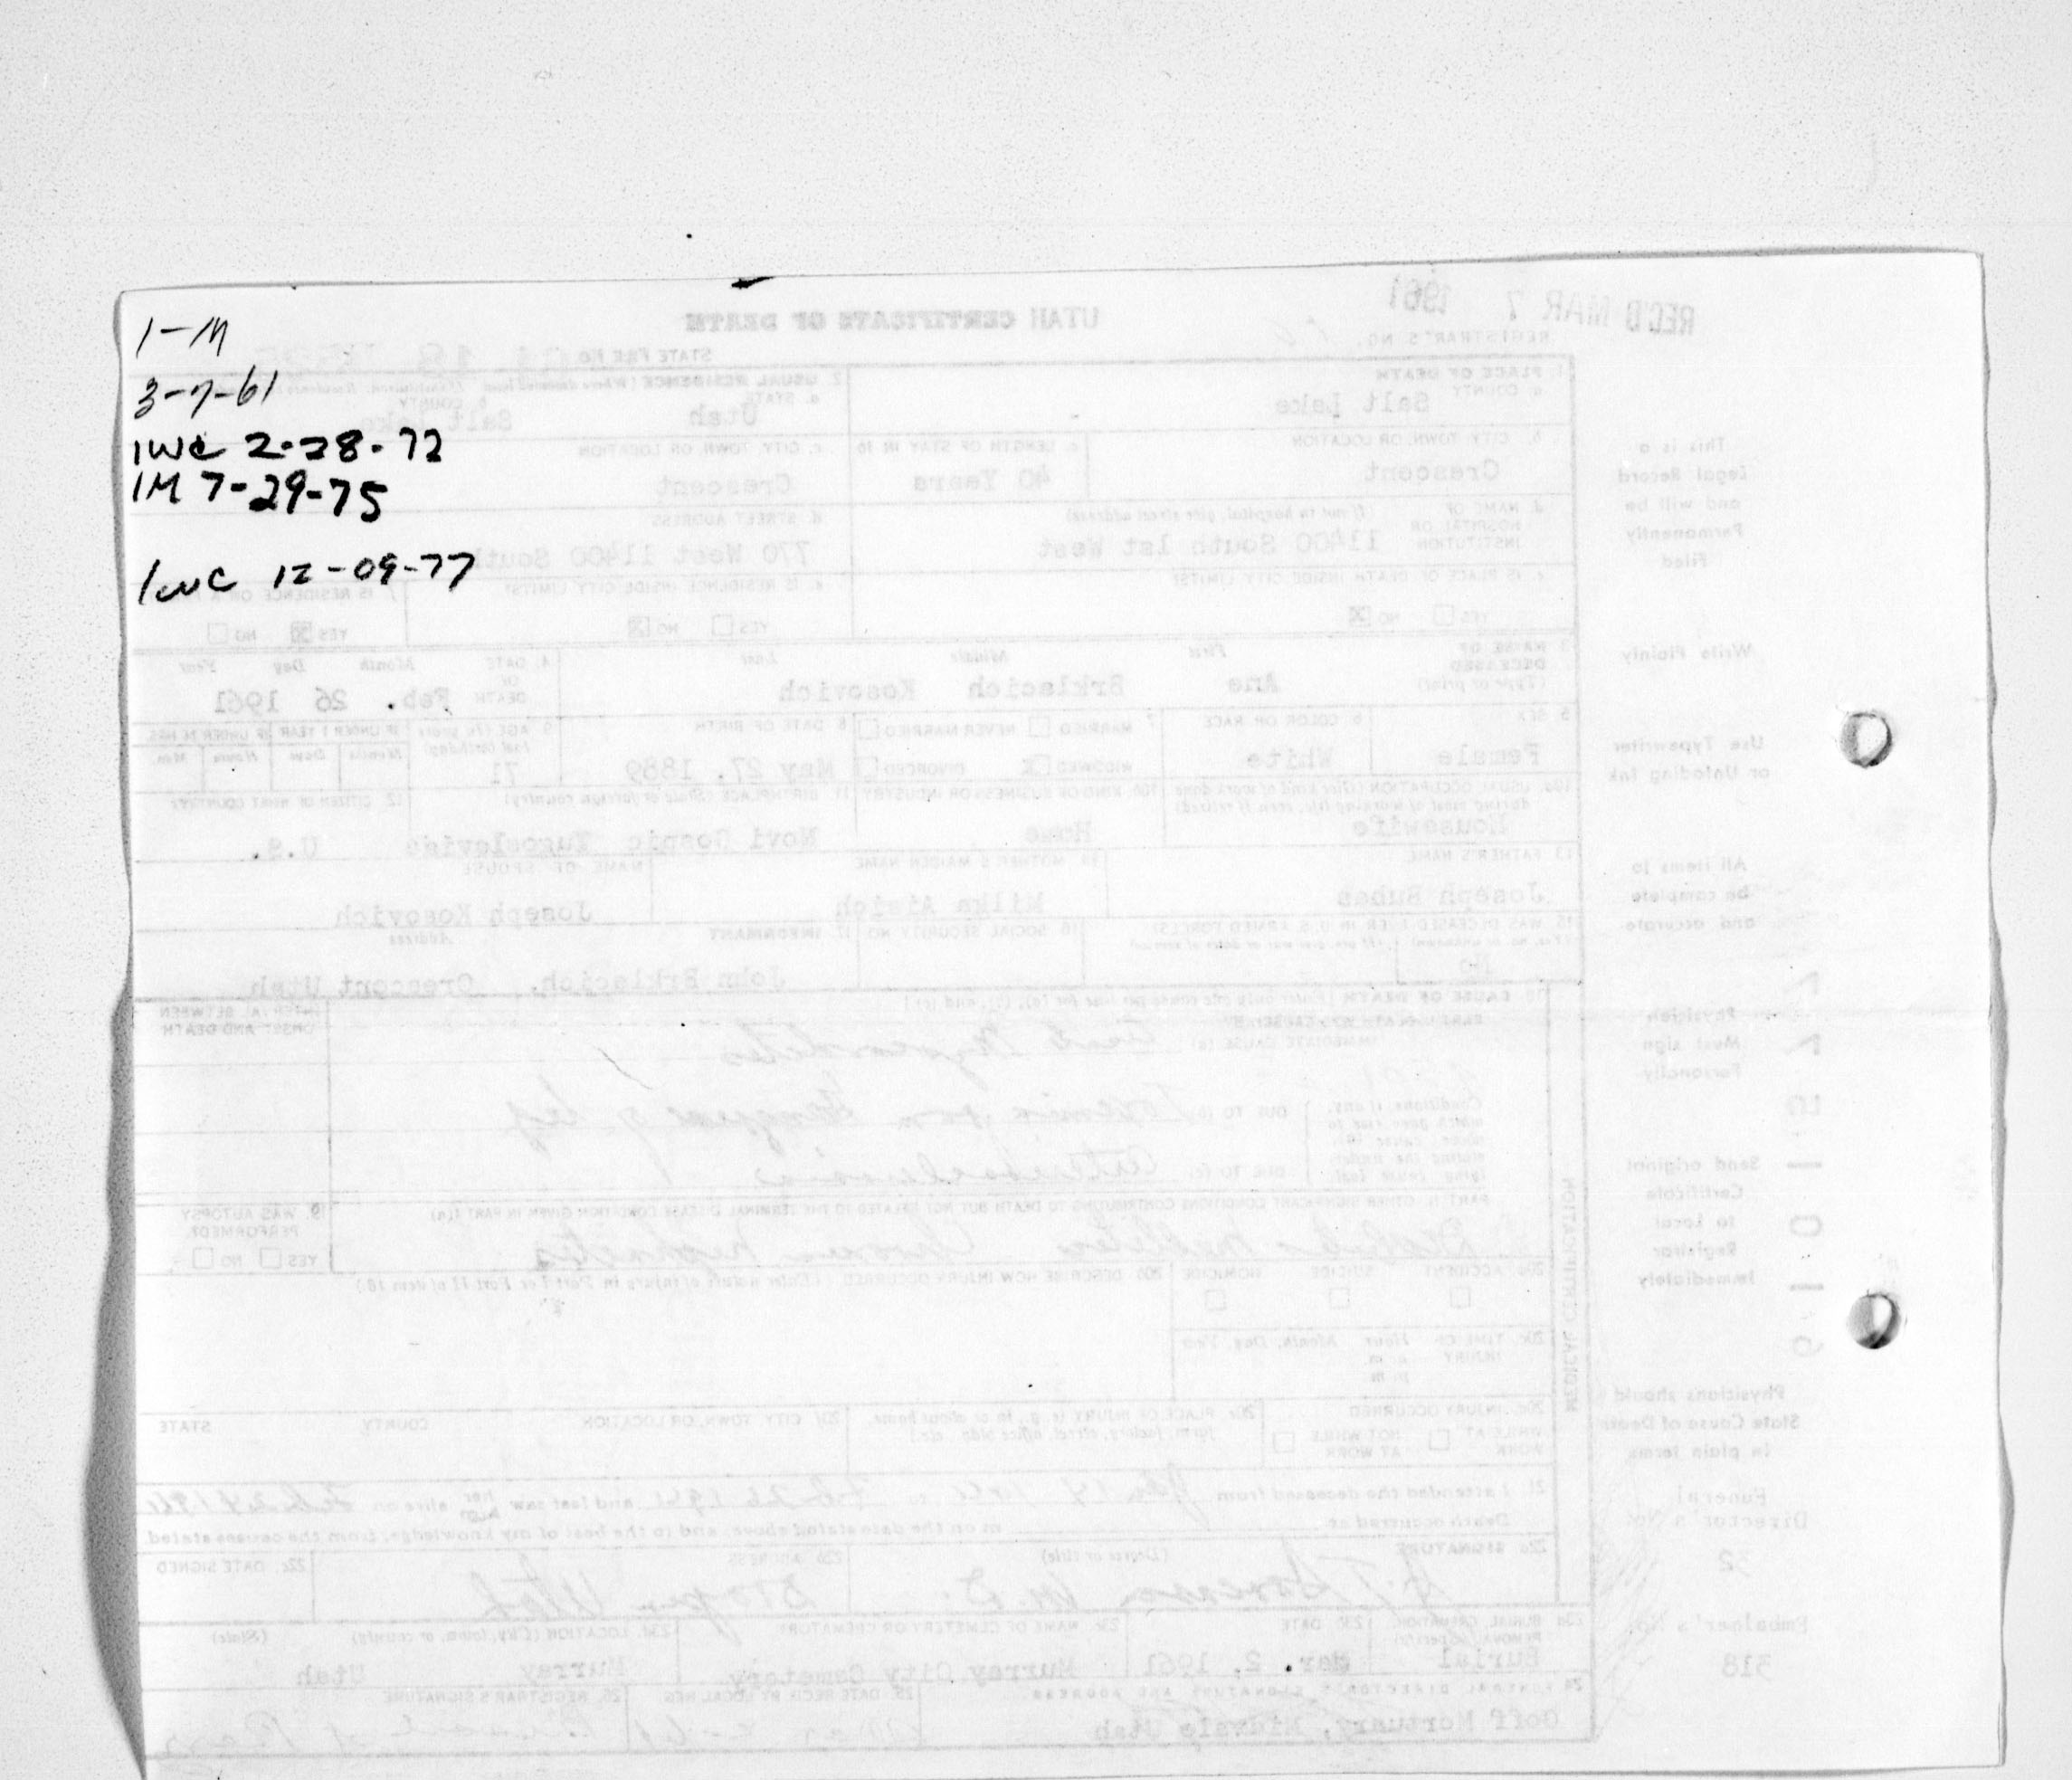 1-M
3-7-61
1WC 2-28-72
1M 7-29-75
1WC 12-09-77
REC'D MAR 7 1961
UTAH CERTIFICATE OF DEATH
REGISTRAR'S NO.
STATE FILE NO.
1. PLACE OF DEATH
a. COUNTY Salt Lake
2. USUAL RESIDENCE
a. STATE Utah b. COUNTY Salt Lake
b. CITY, TOWN, OR LOCATION Crescent
c. LENGTH OF STAY IN 1b 40 Years
c. CITY, TOWN, OR LOCATION Crescent
d. NAME OF HOSPITAL OR INSTITUTION (If not in hospital, give street address) 11400 South 1st West
d. STREET ADDRESS 770 West 11400 South
e. IS PLACE OF DEATH INSIDE CITY LIMITS? YES NO
e. IS RESIDENCE INSIDE CITY LIMITS? YES NO
YES NO
3. NAME OF DECEASED (Type or print) First Middle Last
Ane Brklacich Kosovich
4. DATE OF DEATH Month Day Year
Feb. 26 1961
5. SEX Female
6. COLOR OR RACE White
7. MARRIED NEVER MARRIED WIDOWED DIVORCED
8. DATE OF BIRTH May 27, 1889
9. AGE (In years last birthday) 71
IF UNDER 1 YEAR IF UNDER 24 HRS.
Months Days Hours Min.
10a. USUAL OCCUPATION (Give kind of work done during most of working life, even if retired) Housewife
10b. KIND OF BUSINESS OR INDUSTRY Home
11. BIRTHPLACE (State or foreign country) Novi Gospic Yugoslavia
12. CITIZEN OF WHAT COUNTRY? U.S.
13. FATHER'S NAME Joseph Rubas
14. MOTHER'S MAIDEN NAME Milka
NAME OF SPOUSE Joseph Kosovich
15. WAS DECEASED EVER IN U.S. ARMED FORCES? No
16. SOCIAL SECURITY NO.
17. INFORMANT Address
John Brklacich, Crescent Utah
18. CAUSE OF DEATH
INTERVAL BETWEEN ONSET AND DEATH
IMMEDIATE CAUSE (a) Myocarditis
DUE TO (b) Toxemia from Gangrene of leg
DUE TO (c)
PART II. OTHER SIGNIFICANT CONDITIONS CONTRIBUTING TO DEATH BUT NOT RELATED TO THE TERMINAL DISEASE CONDITION GIVEN IN PART I(a)
Diabetes Mellitus Chronic Nephritis
19. WAS AUTOPSY PERFORMED? YES NO
20a. ACCIDENT SUICIDE HOMICIDE
20b. DESCRIBE HOW INJURY OCCURRED. (Enter nature of injury in Part I or Part II of item 18.)
20c. TIME OF INJURY Hour Month, Day, Year
a. m.
p. m.
20d. INJURY OCCURRED WHILE AT WORK NOT WHILE AT WORK
20e. PLACE OF INJURY (e. g., in or about home, farm, factory, street, office bldg., etc.)
20f. CITY, TOWN, OR LOCATION COUNTY STATE
21. I attended the deceased from to Feb 26 1961 and last saw her alive on Feb 24 1961
Death occurred at m on the date stated above, and to the best of my knowledge, from the causes stated.
22a. SIGNATURE (Degree or title) Sorenson M. D.
22b. ADDRESS Draper Utah
22c. DATE SIGNED
23a. BURIAL, CREMATION, REMOVAL (Specify) Burial
23b. DATE Mar. 2, 1961
23c. NAME OF CEMETERY OR CREMATORY Murray City Cemetery
23d. LOCATION (City, town, or county) (State) Murray Utah
24. FUNERAL DIRECTOR'S SIGNATURE AND ADDRESS
Goff Mortuary, Midvale Utah
25. DATE REC'D BY LOCAL REG.
26. REGISTRAR'S SIGNATURE
MEDICAL CERTIFICATION
This is a
Legal Record
and will be
Permanently
Filed
Write Plainly
Use Typewriter
or Unfading Ink
All items to
be complete
and accurate
Physician
Must sign
Personally
Send original
Certificate
to Local
Registrar
Immediately
Physicians should
State Cause of Death
in plain terms
Funeral
Director's No.
32
Embalmer's No.
318